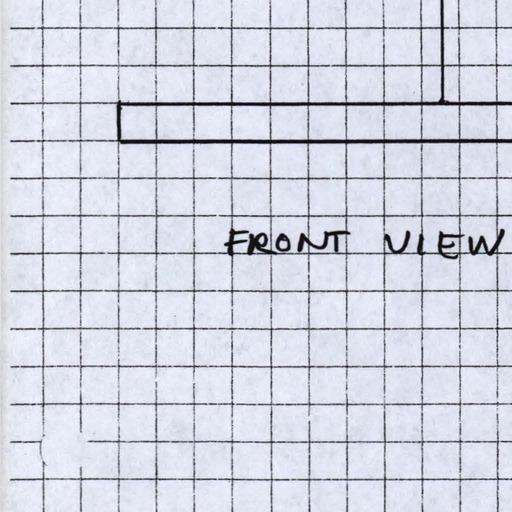 FRONT VIEW